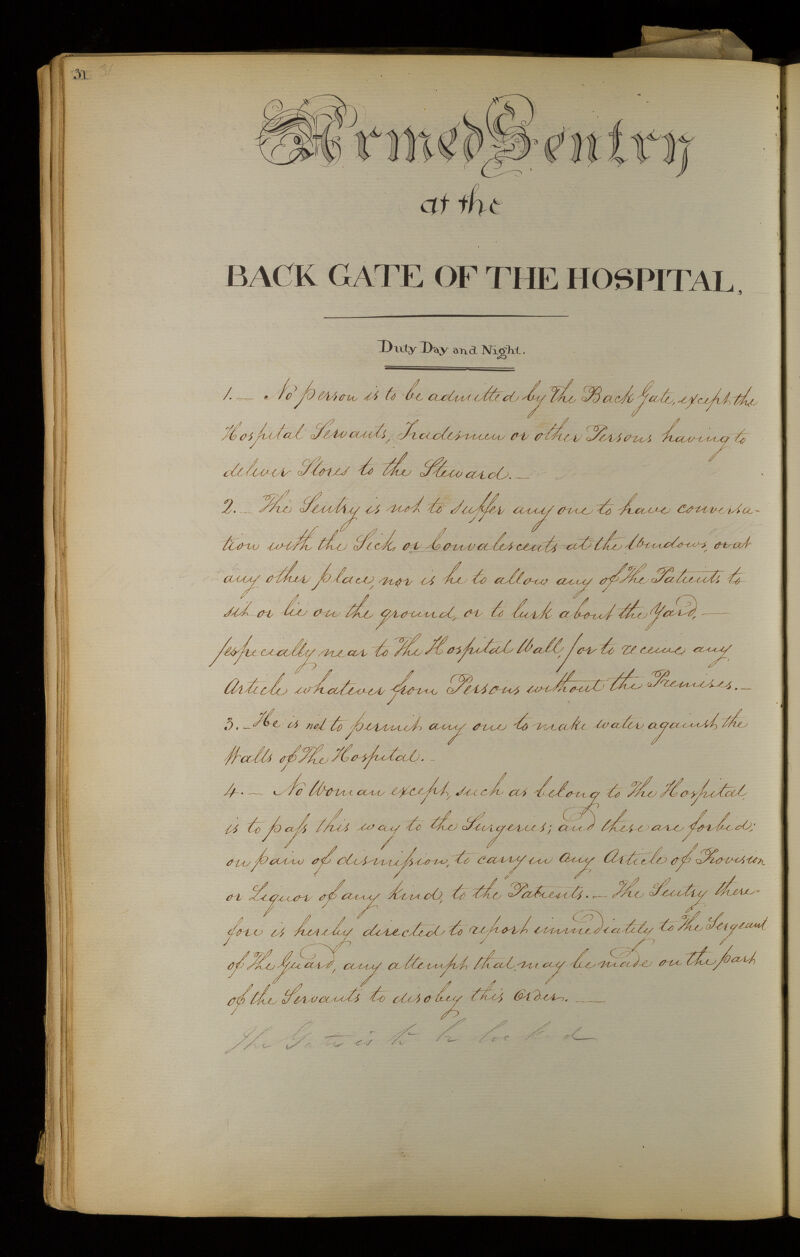 31 31
Armed Sentry
at the
BACK GATE OF THE HOSPITAL,
Duty Day and Night.
1. — No person is to be admitted by The Back Gate, except the
Hospital Servants, Tradesmen or other Persons having to
deliver Stores to the Steward. —
2. — The Sentry is not to suffer any one to have conversa-
tion with the Sick, or Convalescents at the Windows, or at
any other place, nor is he to allow any of The Patients to
sit or lie on the ground, or to lurk about the Yard, —
(especially near to The Hospital Wall) or to receive any
Article whatever from Persons without the Premises. —
3. — He is not to permit any one to make water against the
Walls of The Hospital. —
4. — No Woman except, such as belong to The Hospital,
is to pass this way to the Surgeries; and these are forbid;
on pain of dismission, to carry in any Article of Provision
or Liquor of any kind, to the Patients. — The Sentry there-
fore is hereby directed to report immediately to The Sergeant
of The Guard, any attempt that may be made on the part
of the Servants to disobey this Order. —
The Gate is to be locked